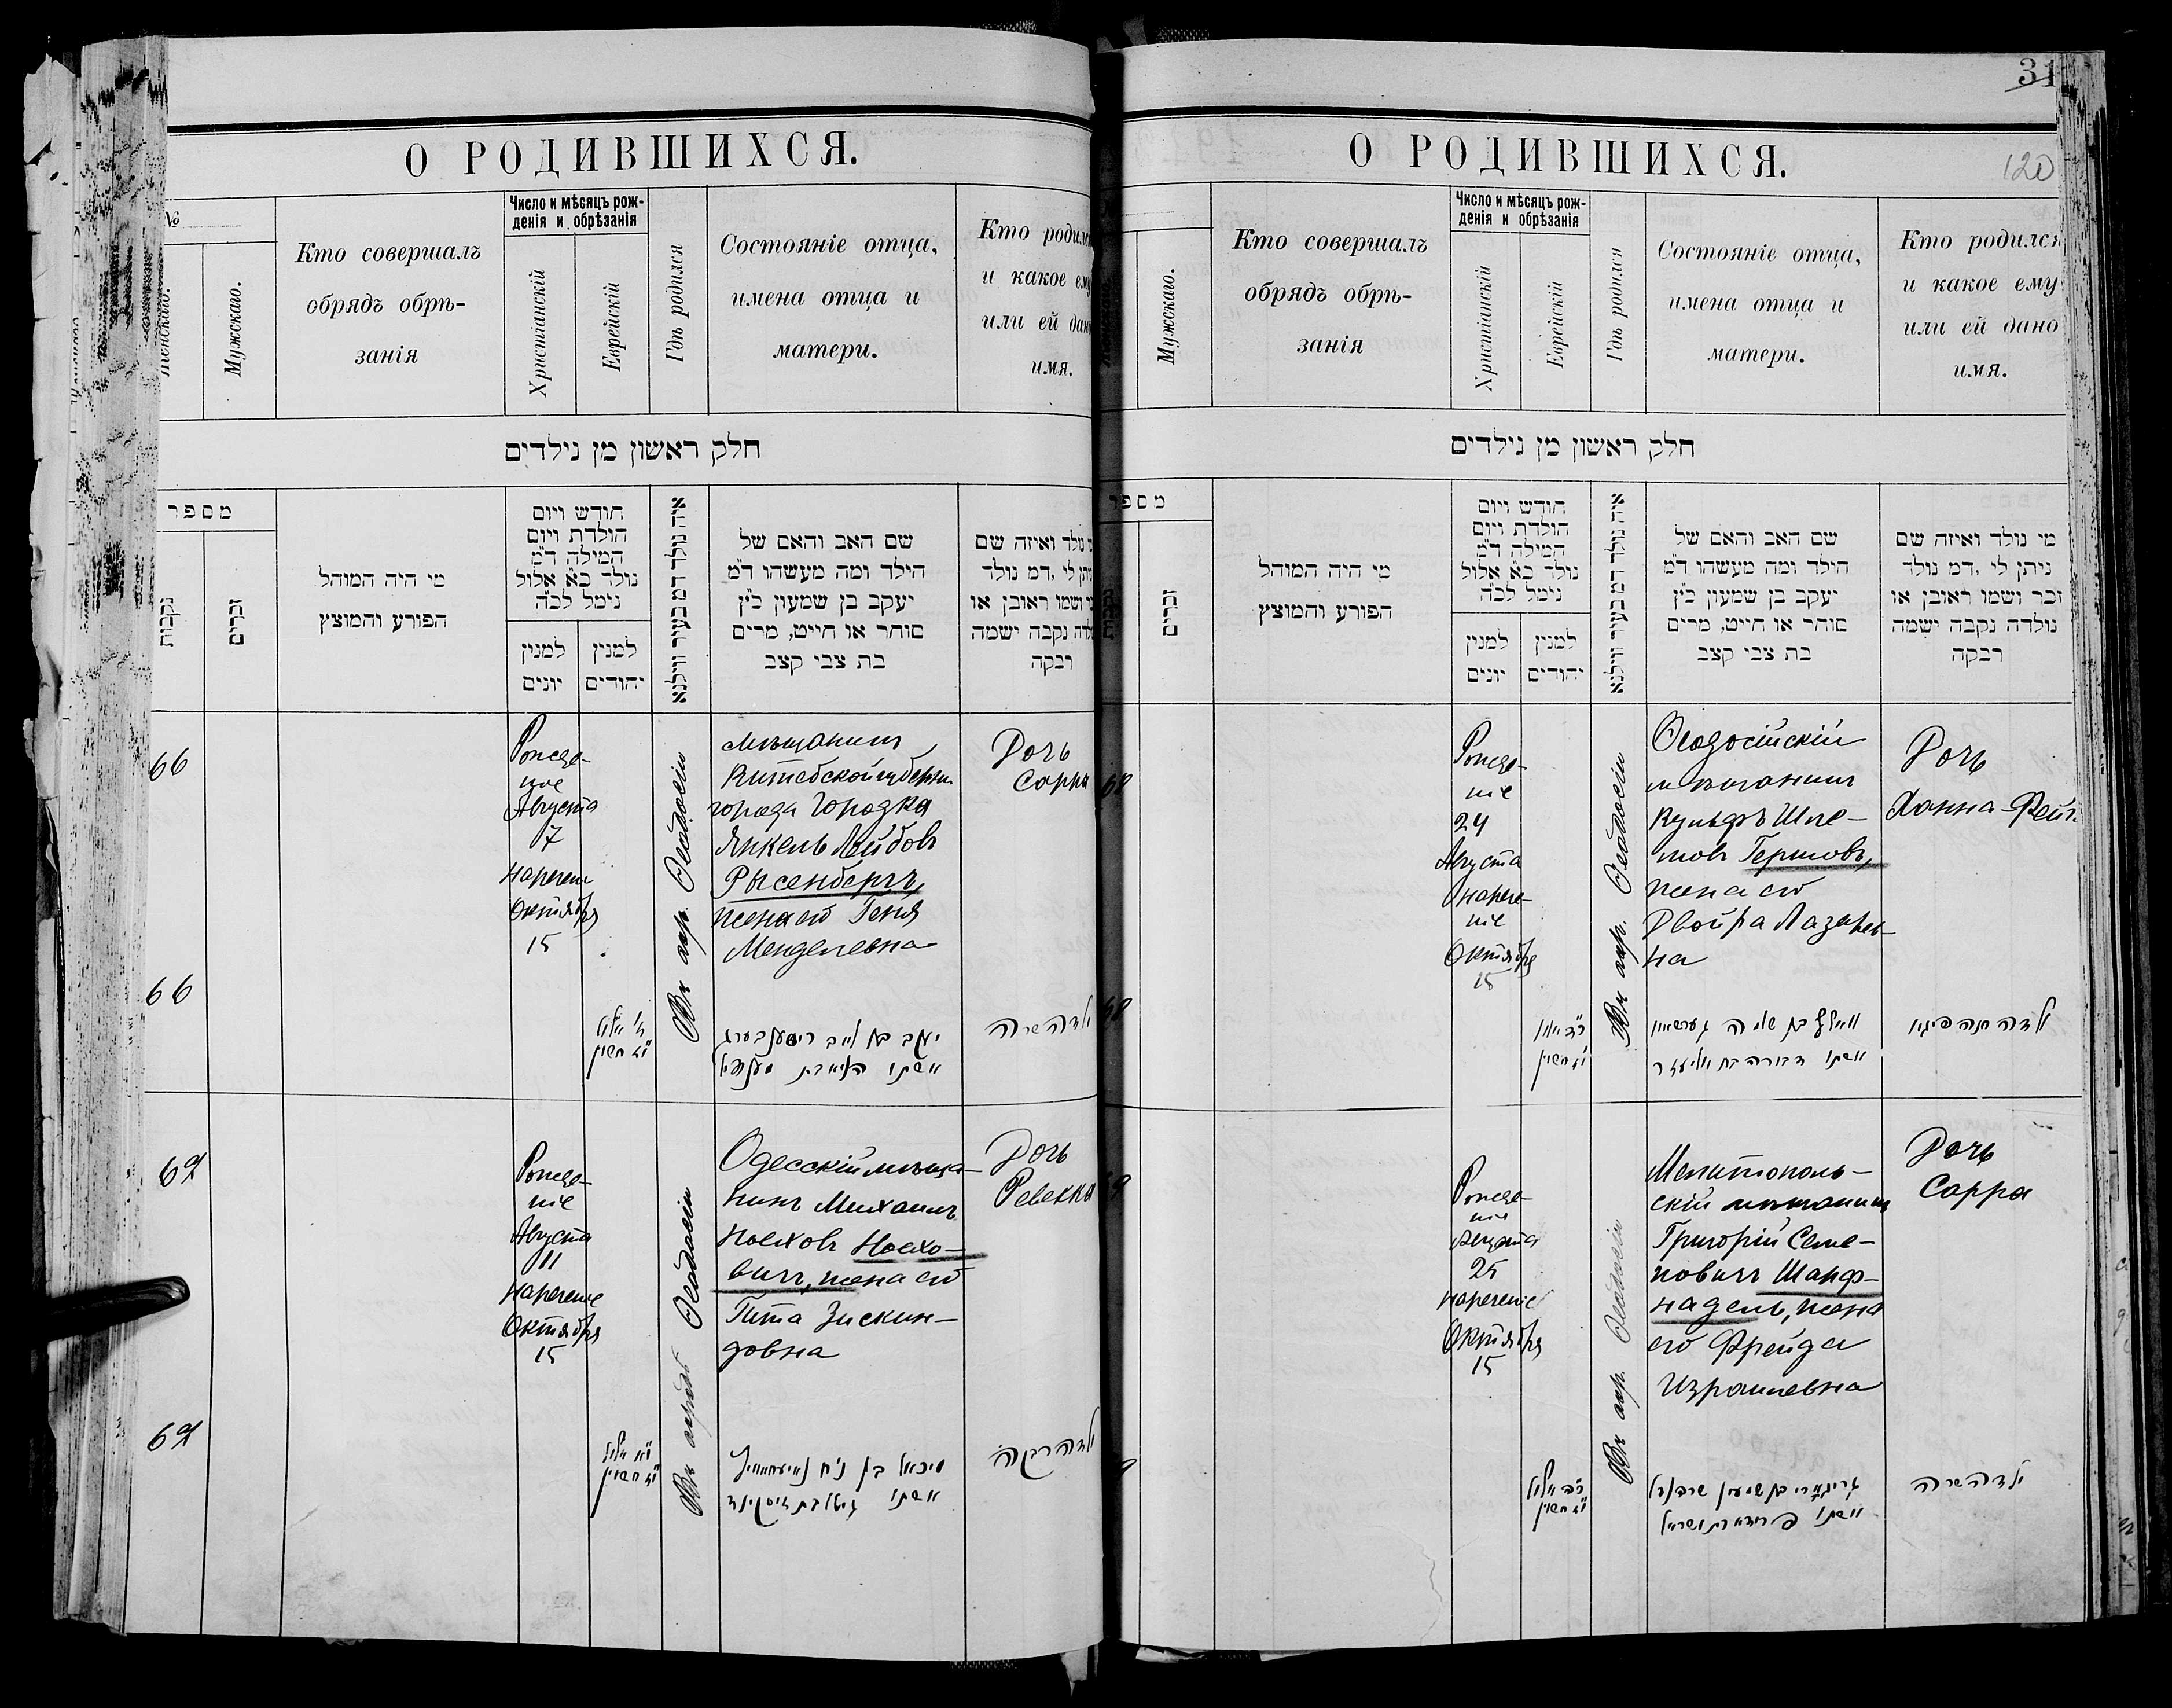 О РОДИВШИХСЯ.
№
Женскаго.
Мужскаго.
Кто совершалъ
обрядъ обрѣ-
занія
Число и мѣсяцъ рож-
денія и обрѣзанія
Христіанскій
Еврейскій
Гдѣ родился
Состояніе отца,
имена отца и
матери.
Кто родился
и какое ему
или ей дано
имя.
חלק ראשון מן נילדים
מספר
נקבות
זכרים
מי היה המוהל
הפורע והמוצץ
חודש ויום
הולדת ויום
המילה ד״מ
נולד כ״א אלול
נימל לכ״ה
למנין
יונים
למנין
יהודים
איה נולד דמ בעיר ווילנא
שם האב והאם של
הילד ומה מעשהו ד״מ
יעקב בן שמעון כ״ץ
סוחר או חייט, מרים
בת צבי קצב
נולד ואיזה שם
ניתן לי ,דמ נולד
ושמו ראובן או
נולדה נקבה ישמה
רבקה
66
Рожде-
ніе
Августа
7
Наречен
Октября
15
Въ гор. Ѳеодосіи
мѣщанинъ
Витебской губерніи
города Городка
Янкель Лейбовъ
Рысенбергъ,
жена его Геня
Менделевна
Дочь
Сарра
66
ז׳ אלול
י״ז חשון
יעקב בן לייב ריסענבערג
ואשתו
ילדה שרה
67
Рожде-
ніе
Августа
11
Нареченіе
Октября
15
Въ городѣ Ѳеодосіи
Одесскій мѣща-
нинъ Михаилъ
Ноеховъ Ноехо-
вичъ, жена его
Гита Зискин-
довна
Дочь
Ревекка
67
י״א אלול
י״ז חשון
מיכאל בן נח
ואשתו גיטל בת זיסקינד
ילדה רבקה
31
О РОДИВШИХСЯ.
120
Мужскаго.
Кто совершалъ
обрядъ обрѣ-
занія
Число и мѣсяцъ рож-
денія и обрѣзанія
Христіанскій
Еврейскій
Гдѣ родился
Состояніе отца,
имена отца и
матери.
Кто родился
и какое ему
или ей дано
имя.
חלק ראשון מן נילדים
מספר
זכרים
מי היה המוהל
הפורע והמוצץ
חודש ויום
הולדת ויום
המילה ד״מ
נולד כ״א אלול
נימל לכ״ה
למנין
יונים
למנין
יהודים
איה נולד דמ בעיר ווילנא
שם האב והאם של
הילד ומה מעשהו ד״מ
יעקב בן שמעון כ״ץ
סוחר או חייט, מרים
בת צבי קצב
מי נולד ואיזה שם
ניתן לי ,דמ נולד
זכר ושמו ראובן או
נולדה נקבה ישמה
רבקה
68
Рожде-
ніе
24
Августа
Нарече-
ніе
Октября
15
Въ гор. Ѳеодосіи
Ѳеодосійскій
мѣщанинъ
Вульфъ Шле-
мовъ Гершовъ,
жена его
Двойра Лазарев-
на
Дочь
Ханна-Фейг
68
י״ז חשון
וואלף בן שלמה גערשאוו
ואשתו דבורה בת אליעזר
ילדה חנה פייגא
69
Рожде-
ніе
Августа
25
Нареченіе
Октября
15
Въ гор. Ѳеодосіи
Мелитополь-
скій мѣщанинъ
Григорій Семе-
новичъ Шарф-
надель, жена
его Фрейда
Израилевна
Дочь
Сарра
י״ז חשון
בן שמעון
ואשתו פריידא בת ישראל
ילדה שרה